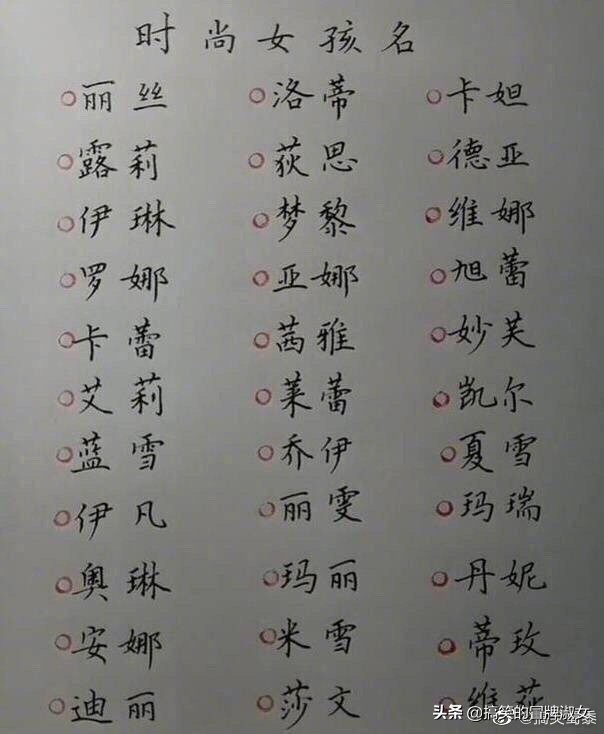 时尚女孩名
丽丝 洛蒂 卡妲
露莉 荻思 德亚
伊琳 梦黎 维娜
罗娜 亚娜 旭蕾
卡蕾 茜雅 妙芙
艾莉 莱蕾 凯尔
蓝雪 乔伊 夏雪
伊凡 丽雯 玛瑞
奥琳 玛丽 丹妮
安娜 米雪 蒂玫
迪丽 莎文 维莎
头条 @搞笑的冒牌淑女